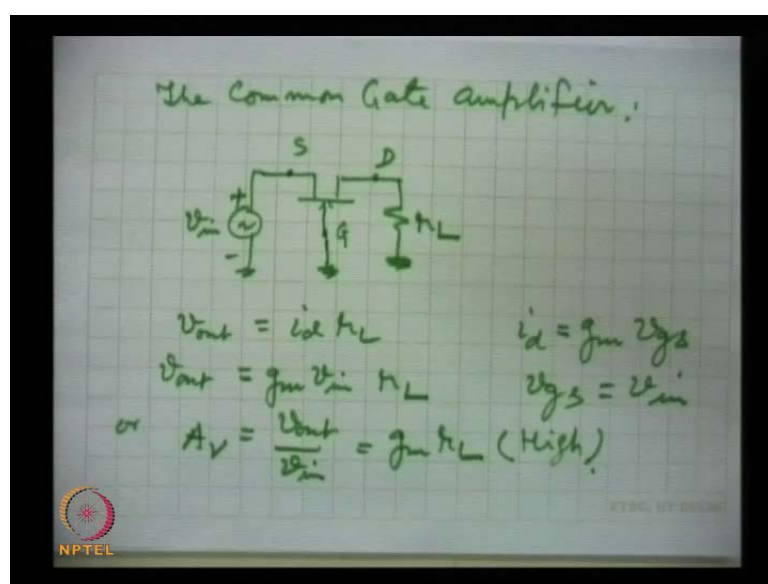 The Common Gate amplifier.
S D
v_in + - G r_L
v_out = i_d r_L i_d = g_m v_gs
v_out = g_m v_in r_L v_gs = v_in
or A_V = v_out / v_in = g_m r_L (High)
NPTEL